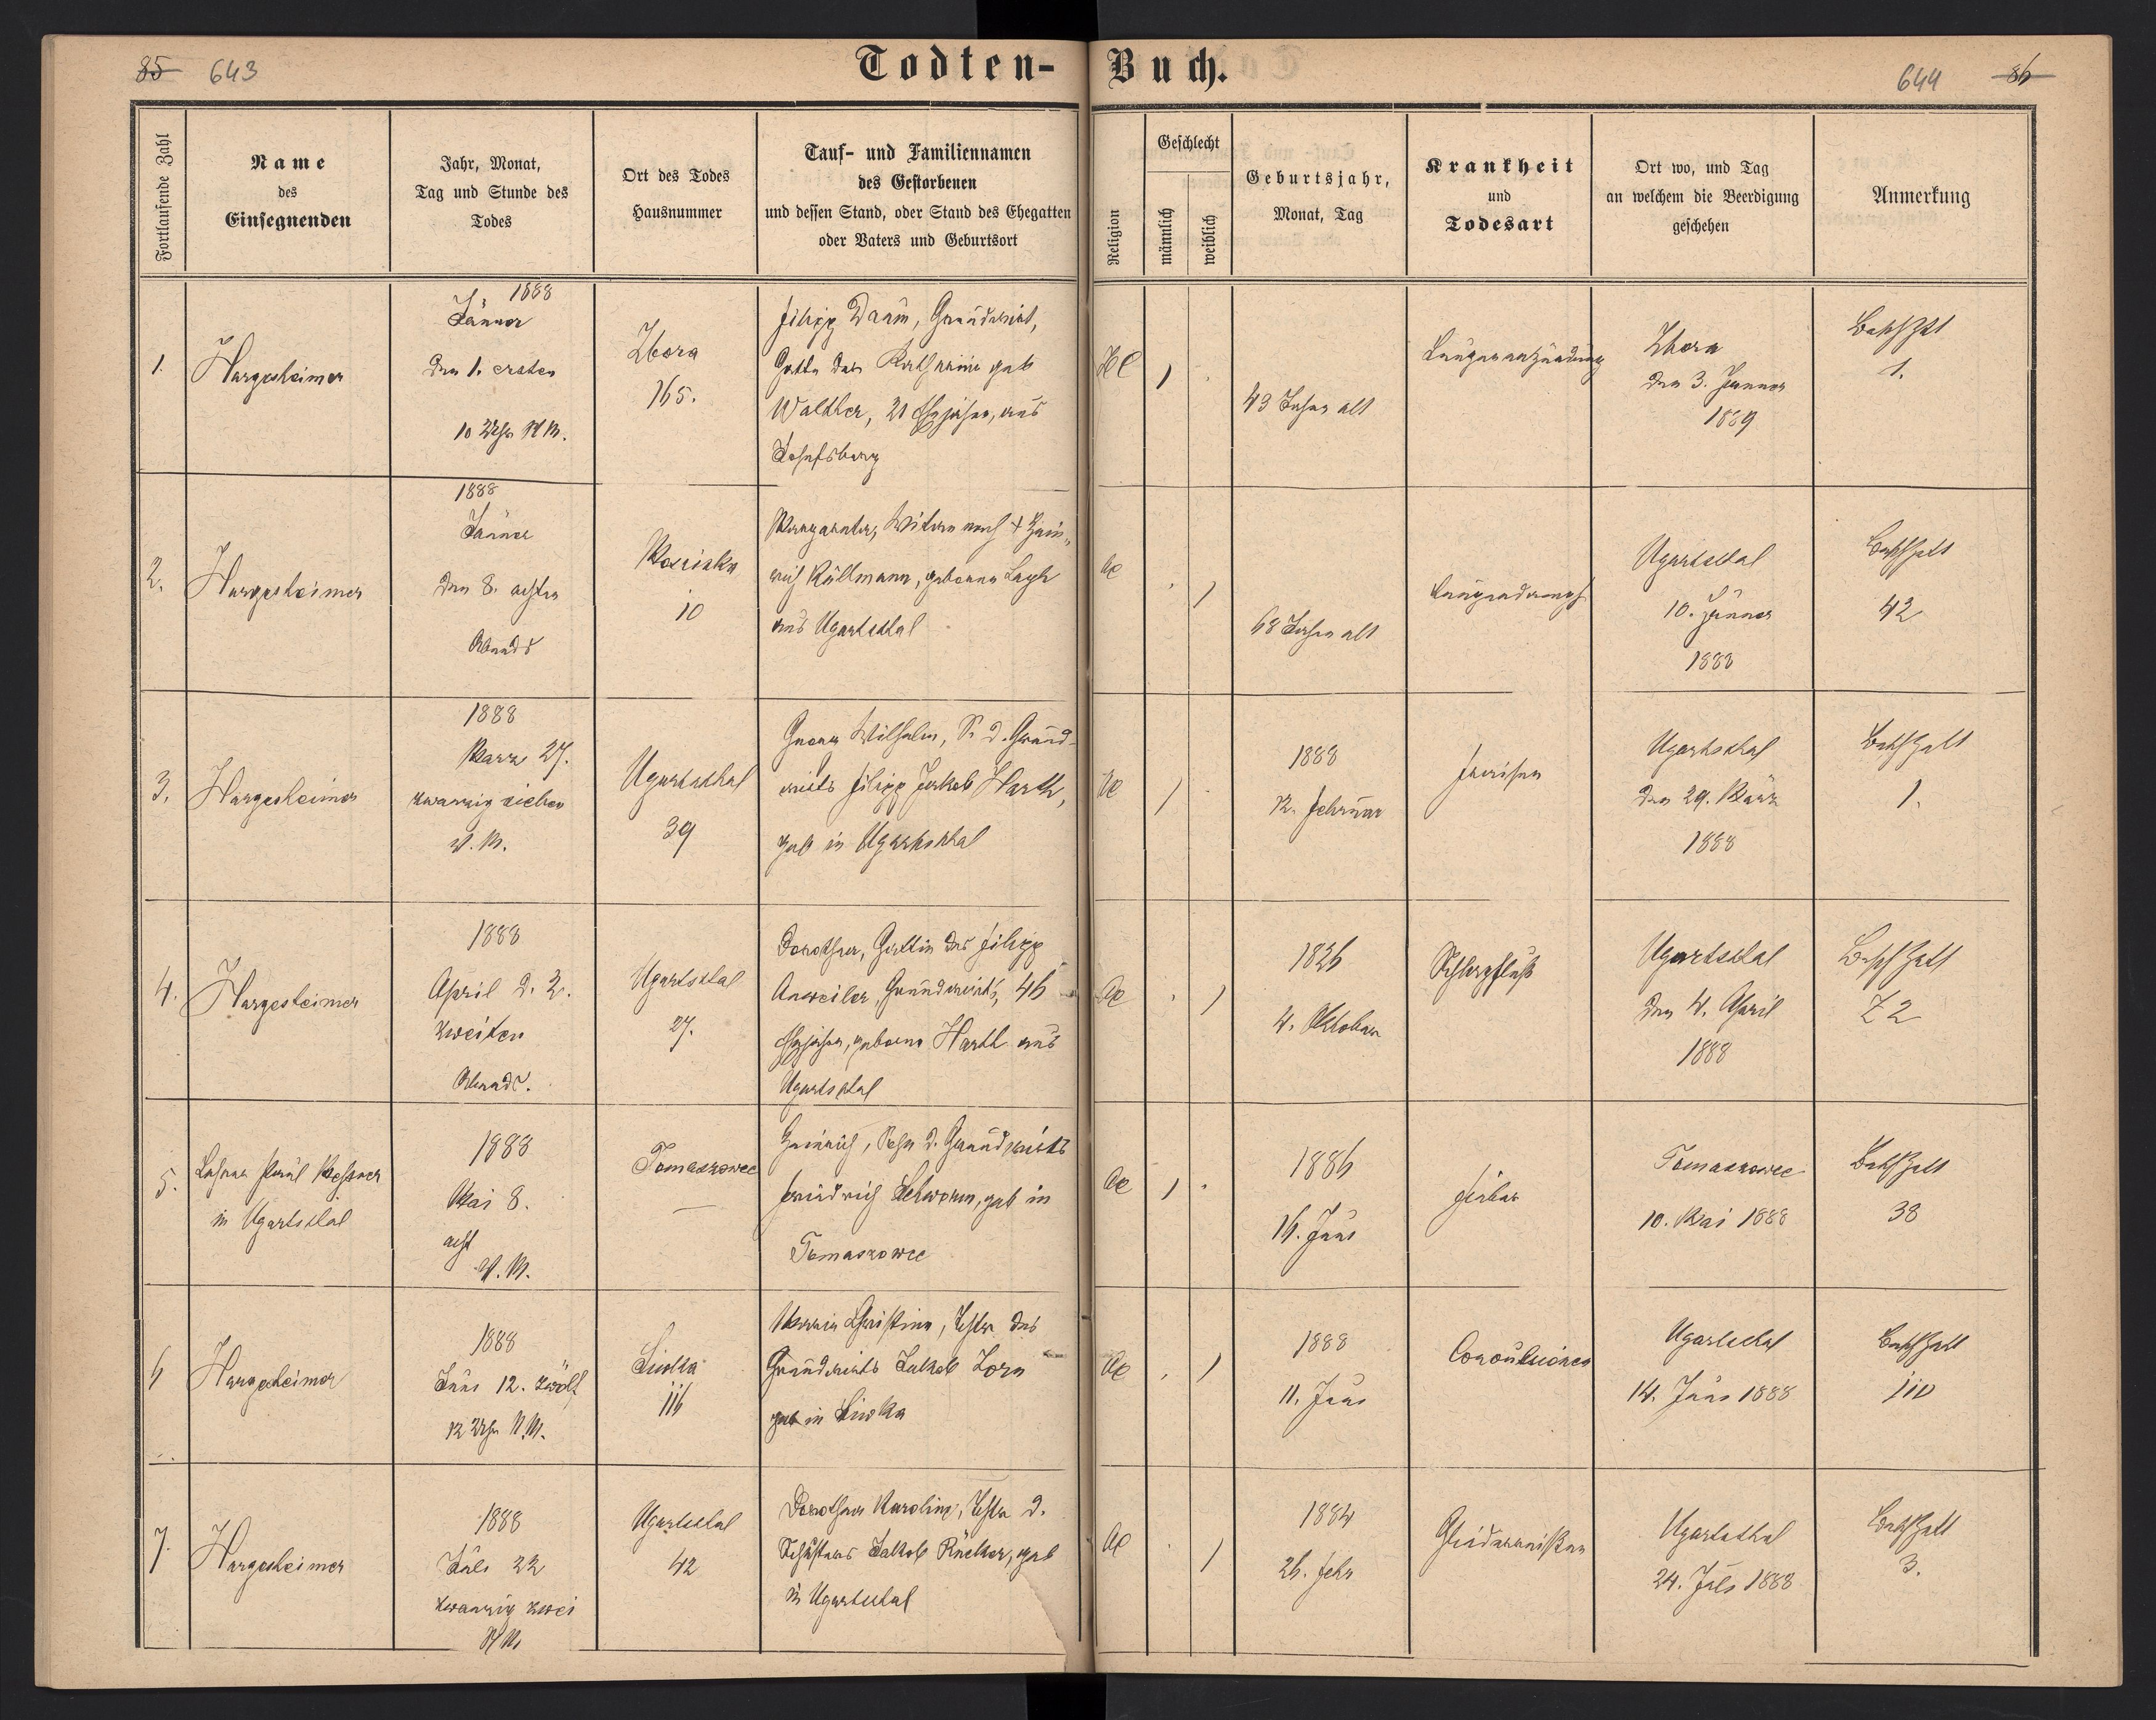 85 643
Todten-Buch.
644 86
Fortlaufende Zahl
Name
des
Einsegnenden
Jahr, Monat,
Tag und Stunde des
Todes
Ort des Todes
Hausnummer
Tauf- und Familiennamen
des Gestorbenen
und dessen Stand, oder Stand des Ehegatten
oder Vaters und Geburtsort
Religion
Geschlecht
männlich
weiblich
Geburtsjahr,
Monat, Tag
Krankheit
und
Todesart
Ort wo, und Tag
an welchem die Beerdigung
geschehen
Anmerkung
1.
Hargesheimer
1888
Jänner
den 1. ersten
10 Uhr N M.
Zbora
165.
Filipp Daum, Grundwirt,
Gatte der Katharina geb
Walther, 21 Ehejahre, aus
Josefsberg
1
43 Jahre alt
Lungenentzündung
Zbora
den 3. Jänner
1889
1.
2.
Hargesheimer
1888
Jänner
den 8. achten
Abends
10
Margaretha, Witwe nach + Hein-
rich Küllmann, geborene
aus Ugartsthal
1
68 Jahre alt
Ugartsthal
10. Jänner
1888
42
3.
Hargesheimer
1888
März 27.
zwanzig sieben
V. M.
Ugartsthal
39
Georg Wilhelm, S. d. Grund-
wirts Filipp Jakob Harth,
geb in Ugartsthal
1
1888
12. Februar
Fraisen
Ugartsthal
den 29. März
1888
1.
4.
Hargesheimer
1888
April d. 2.
zweiten
Abends.
Ugartsthal
27.
Dorothea, Gattin des Filipp
Anweiler, Grundwirts, 46
Ehejahre, geborene Harth aus
Ugartsthal
1
1826
4. Oktober
Schlagfluß
Ugartsthal
den 4. April
1888
Z 2
5.
Lehrer Paul
in Ugartsthal
1888
Mai 8.
acht
V. M.
Tomaszowce
Heinrich, Sohn d. Grundwirts
Friedrich Schworm, geb in
Tomaszowce
1
1886
16. Juni
Fieber
Tomaszowce
10. Mai 1888
38
6
Hargesheimer
1888
Juni 12. zwölf
12 Uhr N. M.
Siwka
116
Maria Christina, Tochter des
Grundwirts Jakob Zorn
geb in Siwka
1
1888
11. Juni
Convulsionen
Ugartsthal
14. Juni 1888
110
7.
Hargesheimer
1888
Juli 22
zwanzig zwei
N M.
Ugartsthal
42
Dorothea Karolina, Tochter d.
Schusters Jakob Rücker, geb
in Ugartsthal
1
1884
26. Febr
Ugartsthal
24. Juli 1888
3.